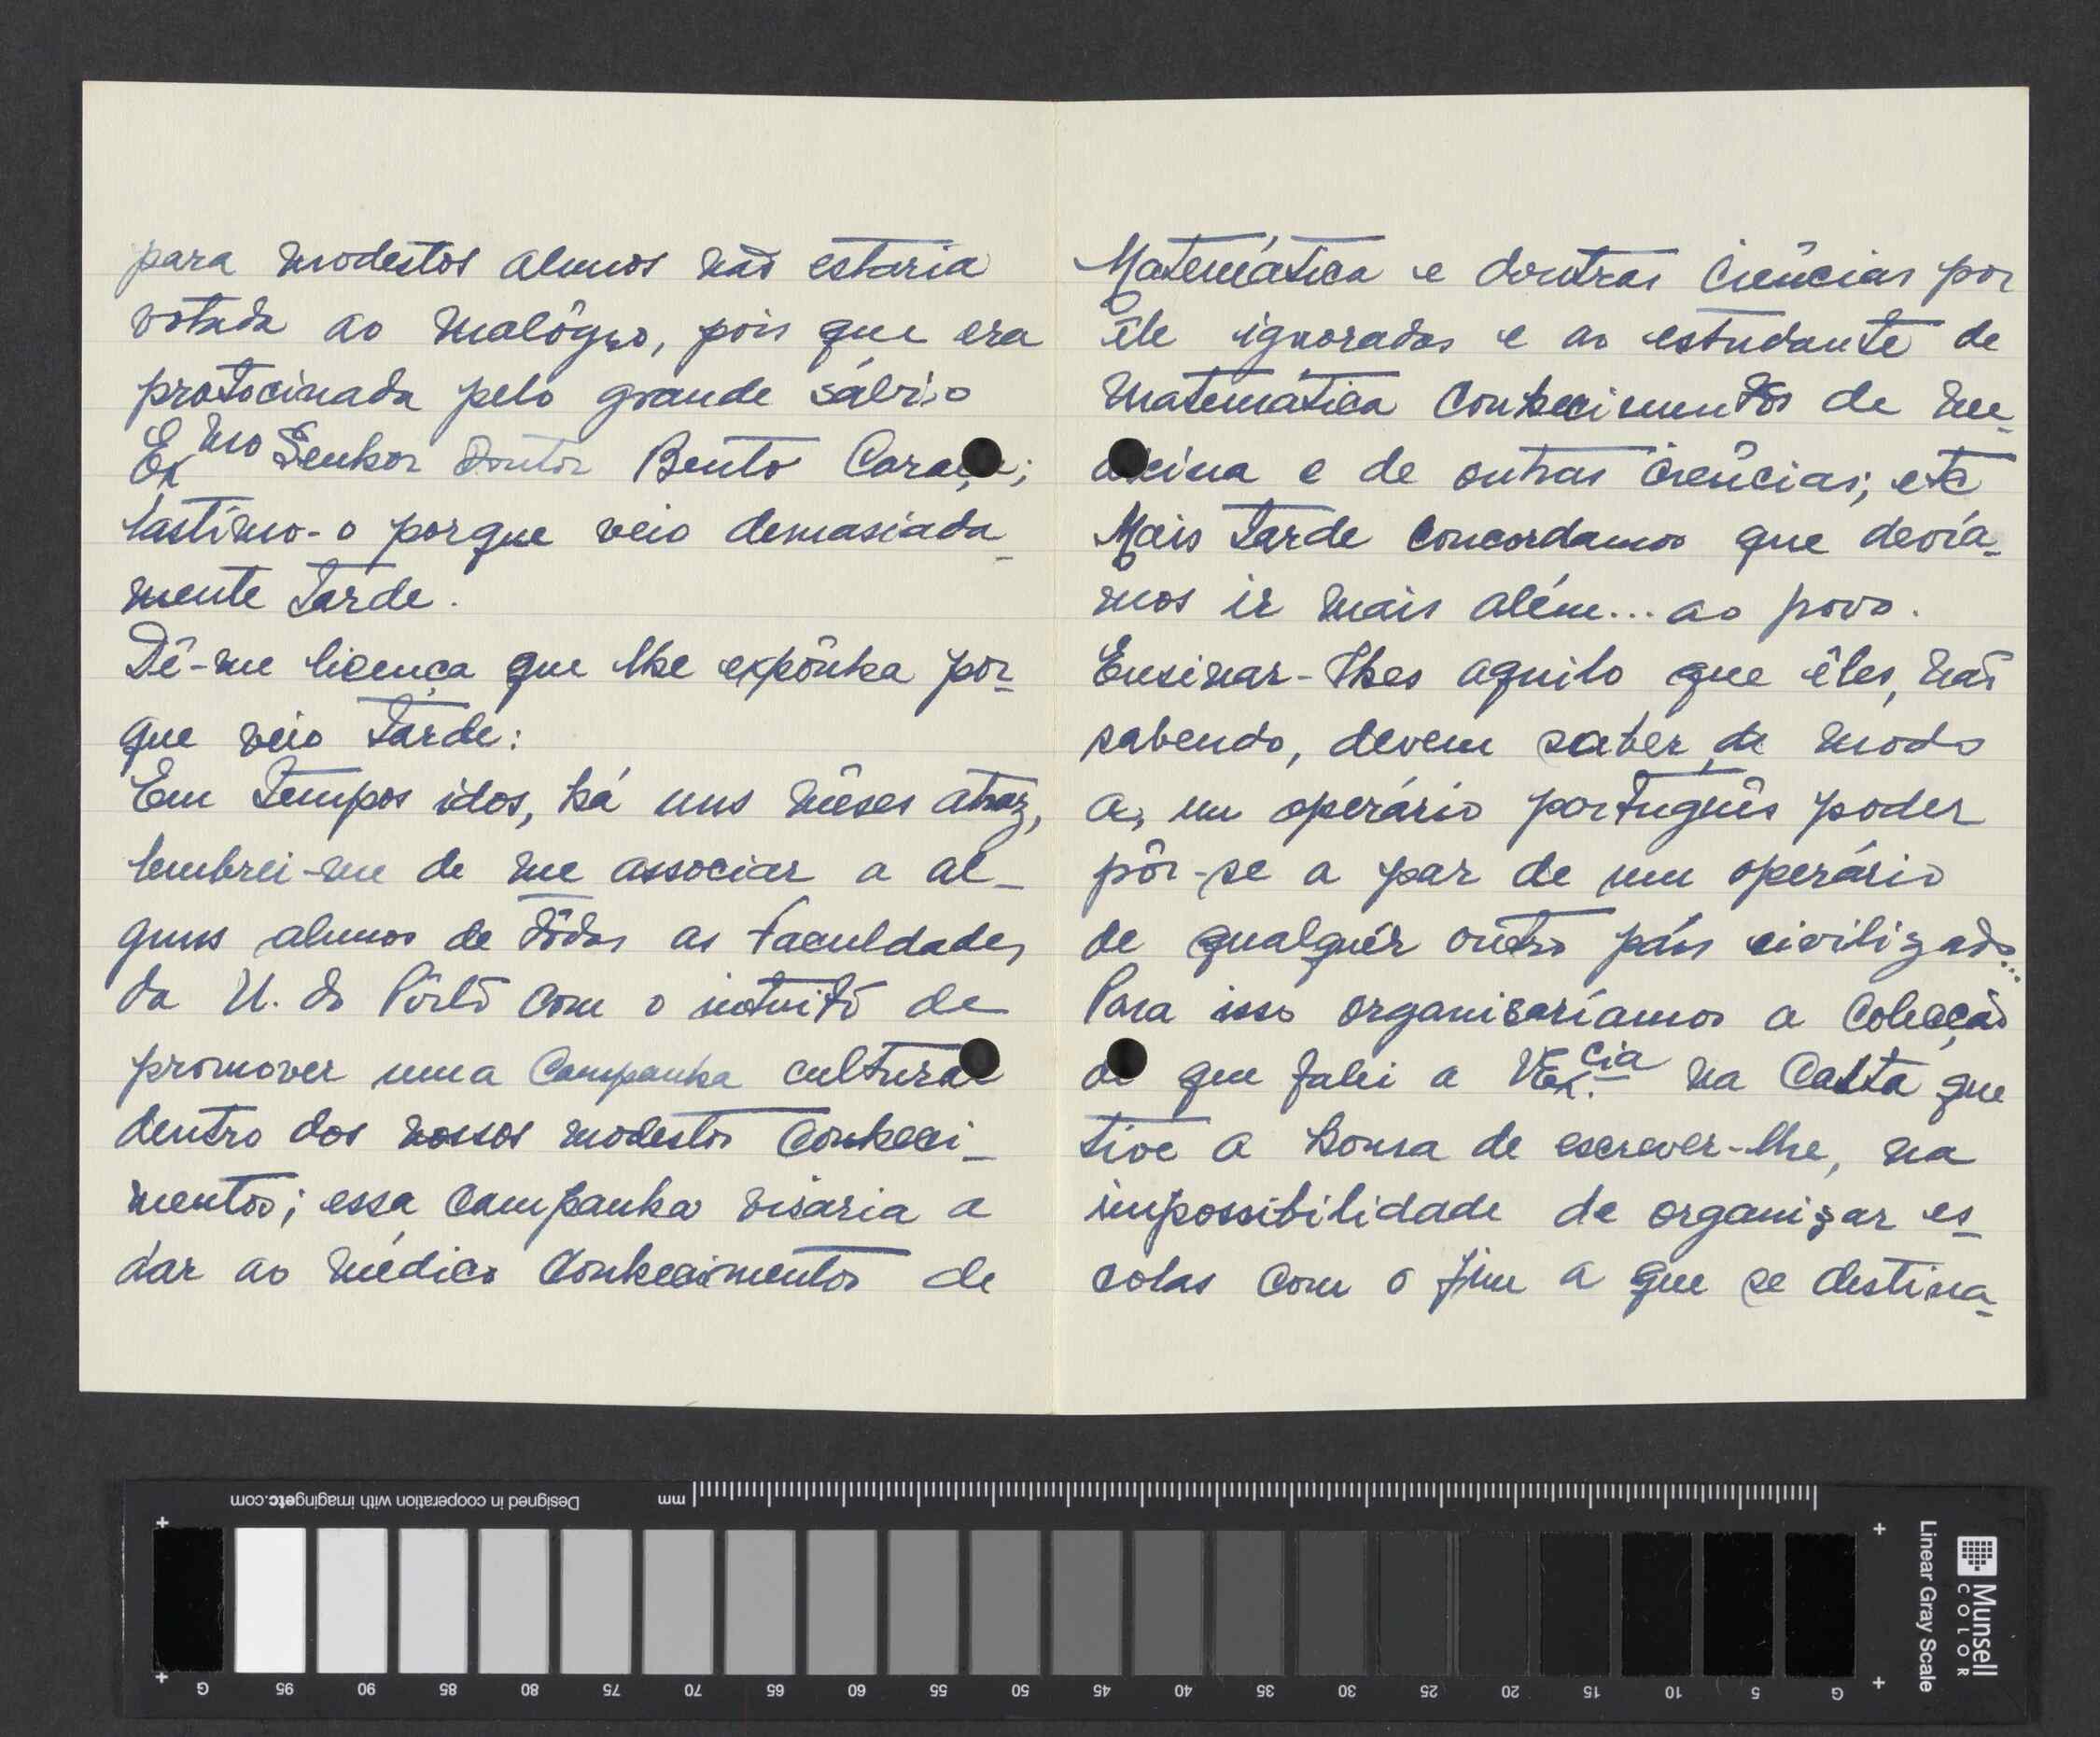 para modestos alunos não estaria
votada ao malôgro, pois que era
protocinada pelo grande sábio
Exmo Senhor Doutor Bento Caraça;
lastimo-o porque veio demasiada-
mente tarde.
Dê-me licença que lhe expônha por-
que veio tarde:
Em tempos idos, há uns mêses atraz,
lembrei-me de me associar a al-
guns alunos de tôdas as Faculdades
da U. do Pôrto com o intuito de
promover uma Campanha cultural
dentro dos nossos modestos conheci-
mentos; essa campanha visaria a
dar ao médico conhecimentos de
Matemática e doutras Ciências por
êle ignoradas e ao estudante de
Matemática conhecimentos de me-
dicina e de outras ciências; etc
Mais tarde concordamos que devía-
mos ir mais além... ao povo.
Ensinar-lhes aquilo que êles, não
sabendo, devem saber, de modo
a, um operário português poder
pôr-se a par de um operário
de qualquér outro país civilizado...
Para isso organisaríamos a Colecção
de que falei a VExcia. na Carta que
tive a honra de escrever-lhe, na
impossibilidade de organizar es-
colas com o fim a que se destina-
Designed in cooperation with imagingetc.com
mm
G 95 90 85 80 75 70 65 60 55 50 45 40 35 30 25 20 15 10 5 G
Linear Gray Scale
Munsell
COLOR